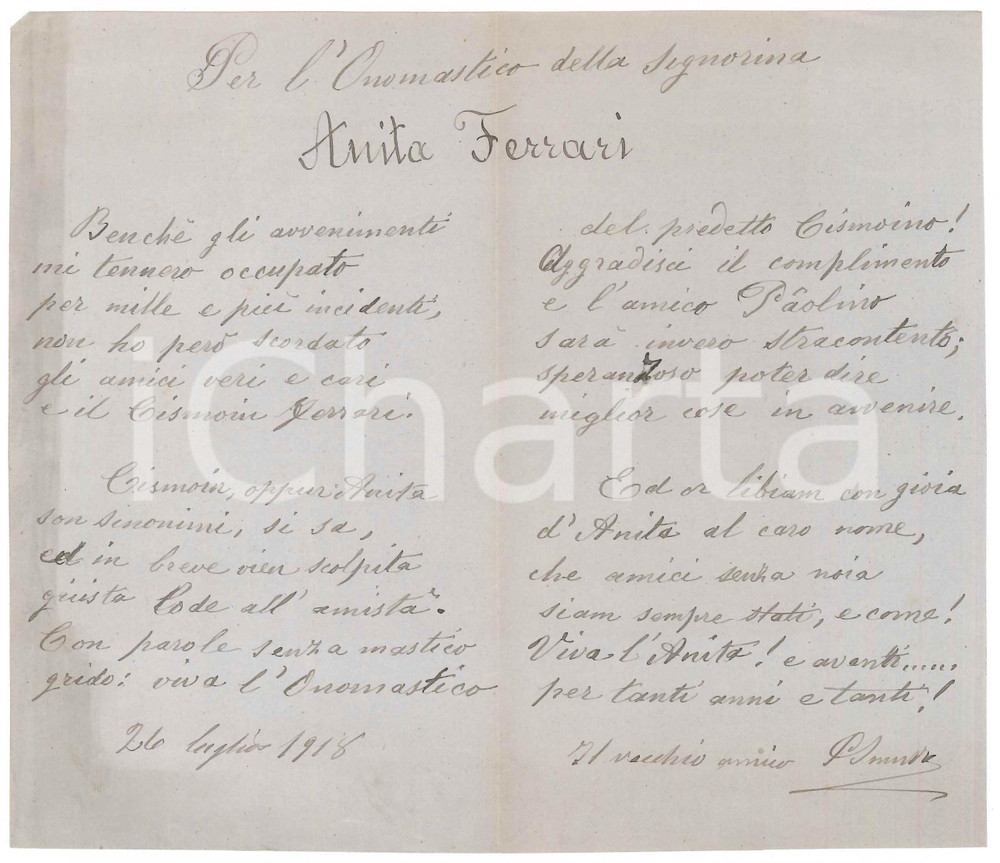 Per l'Onomastico della Signorina
Anita Ferrari
Benchè gli avvenimenti
mi tennero occupato
per mille e più incidenti,
non ho però scordato
gli amici veri e cari
e il Cismoin Ferrari.
Cismoin, oppur Anita
son sinonimi, si sa,
ed in breve vien scolpita
giusta lode all'amistà.
Con parole senza mastico
grido: viva l'Onomastico
26 luglio 1918
del predetto Cismoino!
Aggradisci il complimento
e l'amico Pâolino
sarà invero stracontento;
speranzoso poter dire
miglior cose in avvenire.
Ed or libiam con gioia
d'Anita al caro nome,
che amici senza noia
siam sempre stati, e come!
Viva l'Anita! e avanti......
per tanti anni e tanti!
Il vecchio amico
iCharta